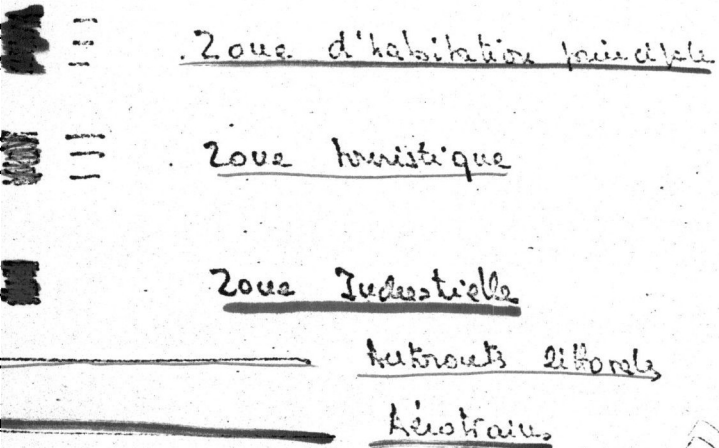 Zone d'habitation principale
Zone touristique
Zone Industrielle
Autoroute littorale
Aérotrains